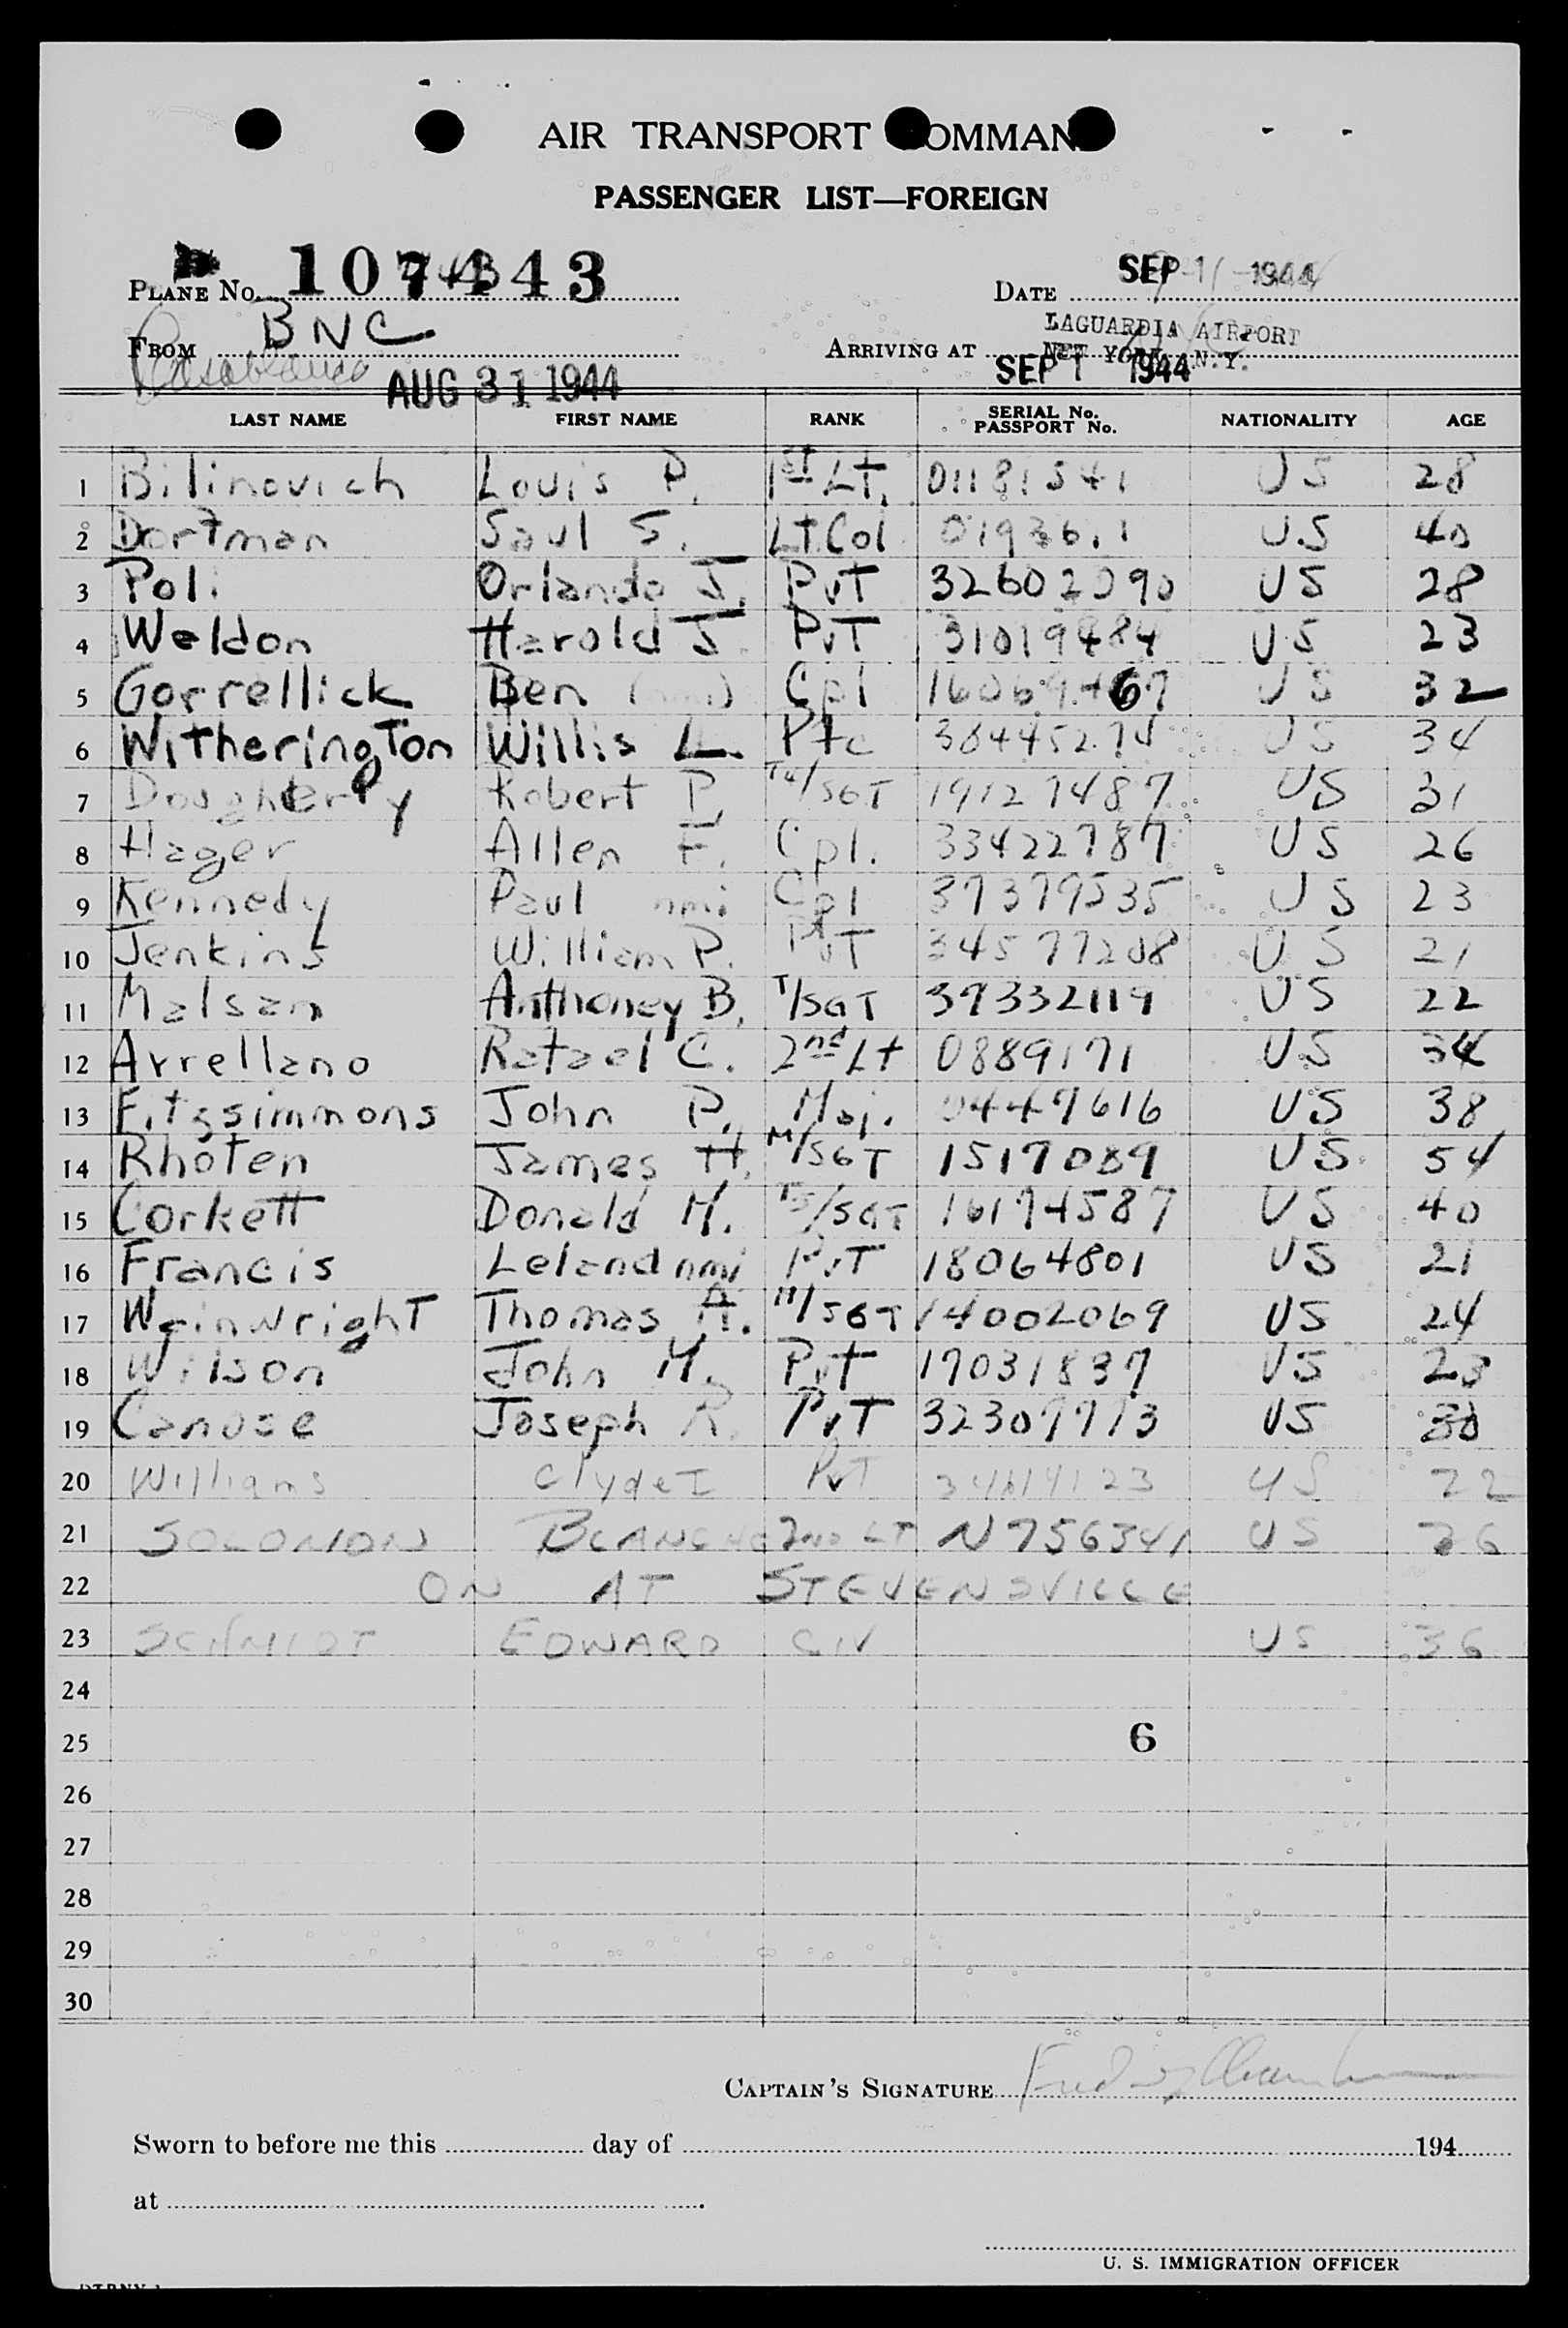 AIR TRANSPORT COMMAND
PASSENGER LIST—FOREIGN
PLANE No. 107443
DATE SEP 1 1944
FROM BNC
Casablanca
AUG 31 1944
ARRIVING AT LAGUARDIA AIRPORT
NEW YORK, N.Y.
SEP 1 1944
LAST NAME FIRST NAME RANK SERIAL No. PASSPORT No. NATIONALITY AGE
1 Bilinovich Louis P. 1st Lt. 01181541 US 28
2 Dorfman Saul S. Lt Col U.S 40
3 Poli Orlando J. PvT 32602090 US 28
4 Weldon Harold J. PvT 31019484 US 23
5 Gorrellick Ben Cpl US 32
6 WitheringTon Willis L. Pfc US 34
7 Dougherty Robert P. /SGT 19127487 US 31
8 Hager Allen F. Cpl. 33422787 US 26
9 Kennedy Paul nmi Cpl 37379535 US 23
10 Jenkins William P. PvT 34577208 US 21
11 Malsam Anthoney B. T/SGT 37332119 US 22
12 Arrellano Rafael C. 2nd Lt 0889171 US 34
13 Fitzsimmons John P. Maj. 0447616 US 38
14 Rhoten James H. M/SGT 1517089 US 54
15 Corkett Donald M. /SGT 16174587 US 40
16 Francis Leland nmi PvT 18064801 US 21
17 WainwrighT Thomas A. M/SGT 14002069 US 24
18 Wilson John M. Pvt 17031837 US 23
19 Canose Joseph R. PvT 32307713 US
20 Williams Clyde I PvT 34614123 US 22
21 SOLOMON BLANCHE 2ND LT N756341 US 26
22 ON AT STEVENSVILLE
23 SCHMIDT EDWARD CIV US 36
24
25 6
26
27
28
29
30
CAPTAIN'S SIGNATURE
Sworn to before me this day of 194
at
U. S. IMMIGRATION OFFICER